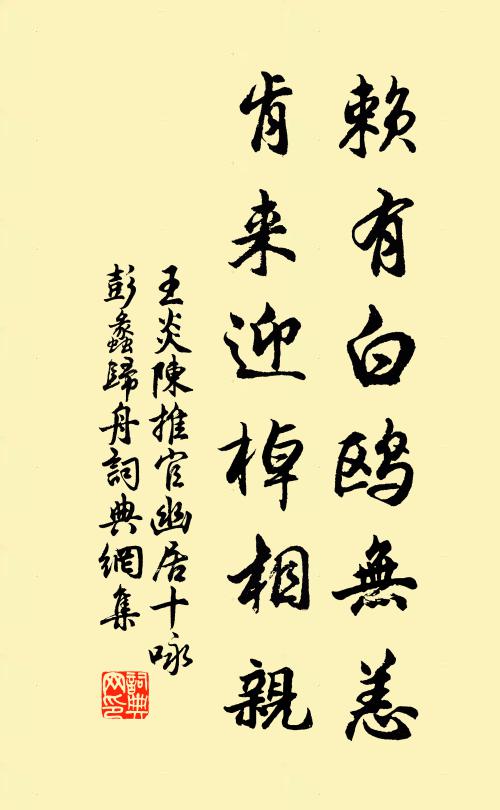 賴有白鸥無恙
肯来迎棹相親
王炎陳推官幽居十咏
彭蠡歸舟詞典網集
詞典网印